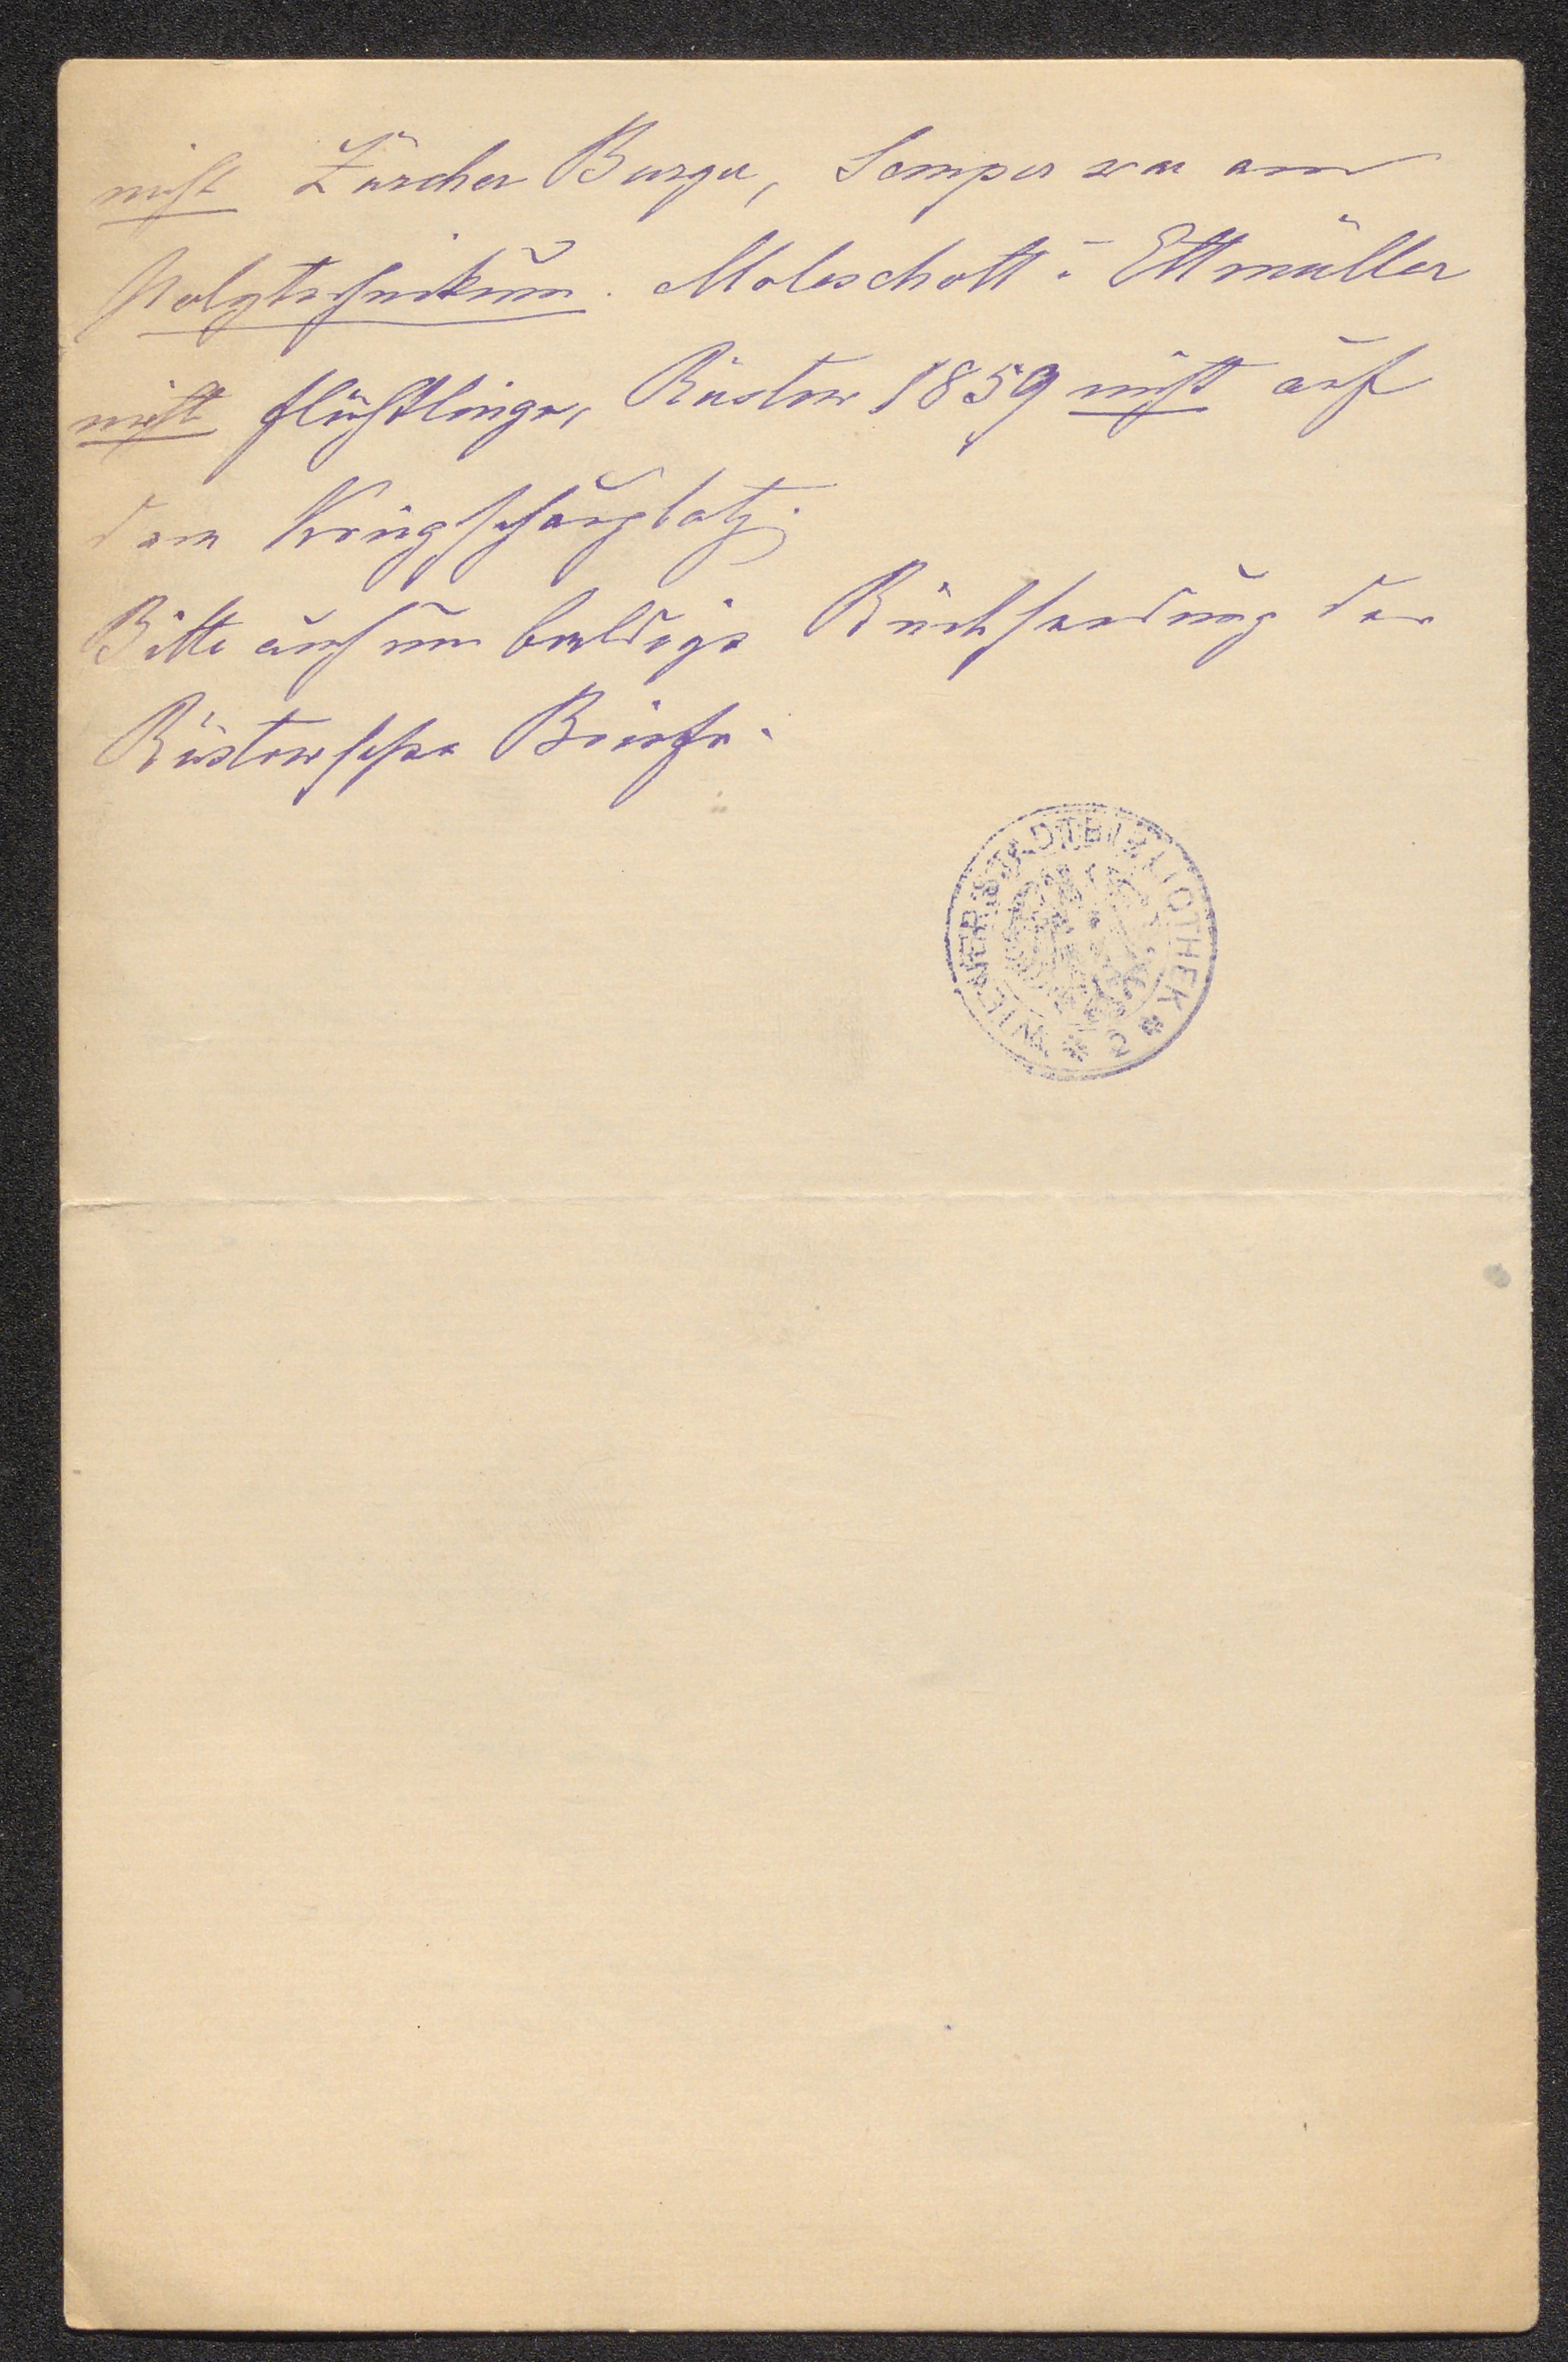 nicht Zürcher Burger, Semper war am
Polytechnikum. Moleschott u Ettmüller
nicht Flüchtlinge, Rüstow 1859 nicht auf
dem Kriegsschauplatz.
Bitte auch um baldige Rücksendung der
Rüstowsche Briefe.
WIENER STADTBIBLIOTHEK